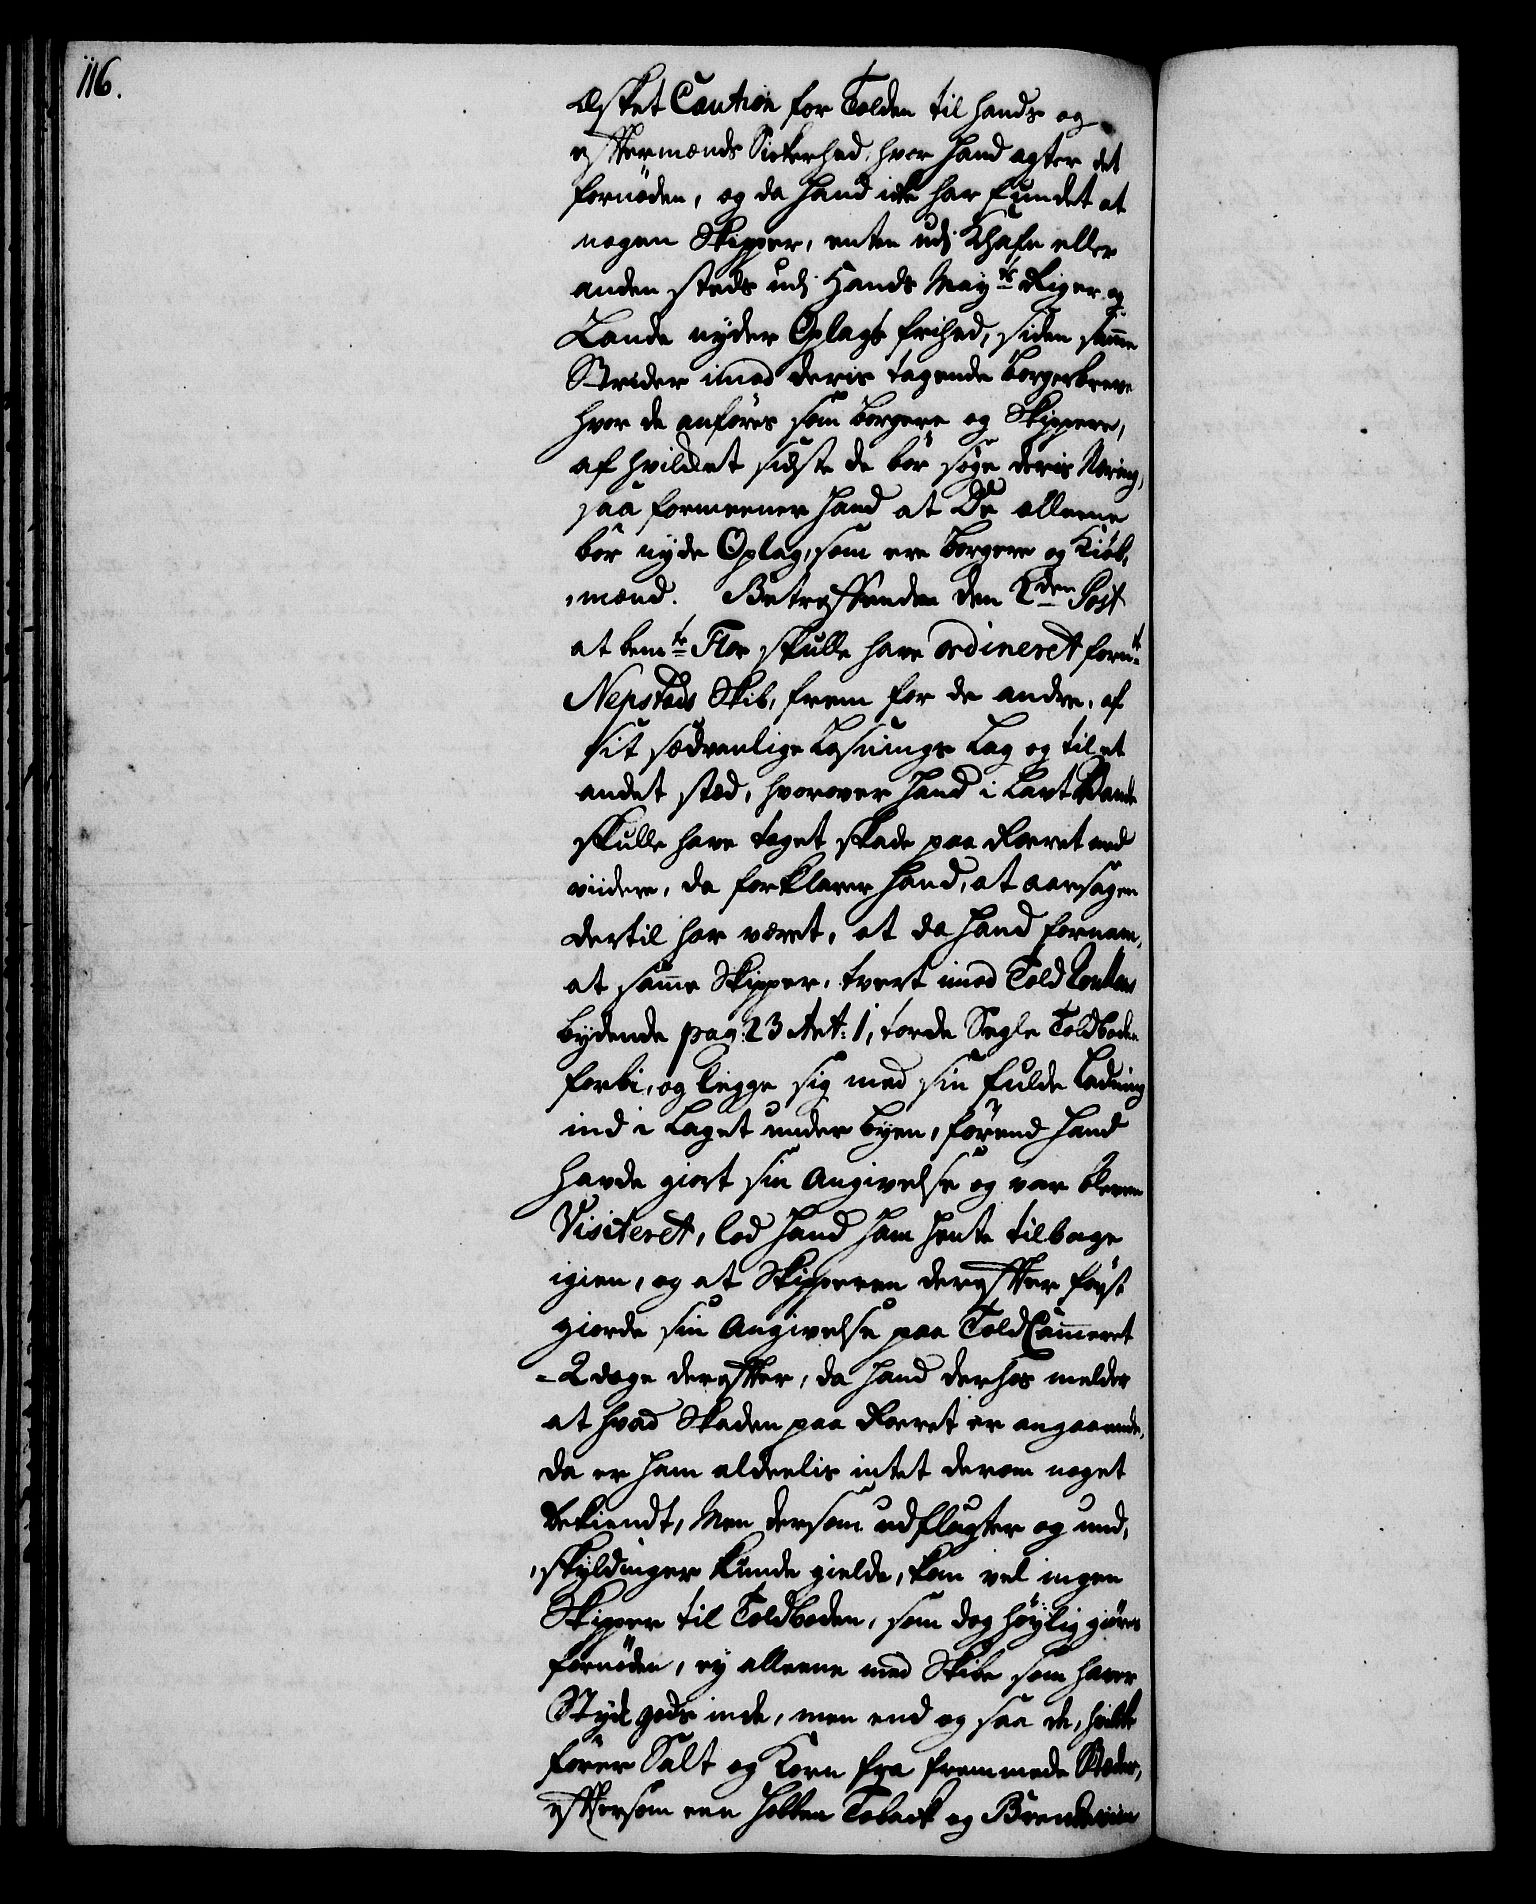 116.
Æsket Caution for Tolden til hands og
eftermænds Sikerhed, hvor hand agter det
fornöden, og da hand icke har fundet at
nogen Skipper, enten udj Khafn eller
anden steds udj Hands May:ts Riger og
Lande nyder Oplags frihed, siden samme
Strider imod deris tagende borgerbreve
hvor de anföres som borgere og Skippere,
af hvilcket sidste de bör söge deris Næring,
saa formeener hand at De alleene
bör nyde Oplag, som ere borgere og Kiöb,
,mænd. Betreffende den 2den Post
at bem:te Flor skulle have ordineret forn:t
Nepstads Skib, frem for de andre, af
sit sædvanlige Losnings Lag og til et
andet stæd, hvorover hand i Lavt Vande
skulle have taget skade paa Roeret med
viidere, da forklarer hand, at aarsagen
dertil har været, at da hand fornam,
at samme Skipper, tvert imod Told Rullens
bydende pag: 23 Art: 1, torde Segle Toldboden
forbi, og legge sig med sin fulde Ladning
ind i Laget under byen, förend hand
havde giort sin Angivelse og var bleven
Visiteret, lod hand ham hente tilbage
igien, og at Skipperen derefter först
giorde sin Angivelse paa ToldCammeret
- 2 dage derefter, da hand derhos melder
at hvad Skaden paa Roeret er angaaende,
da er ham alderlis intet derom noget
bekiendt, Men dersom udflugter og und,
,skyldinger kunde gielde, kom vel ingen
Skipper til Toldboden, som dog höylig giöres
fornöden, ey alleene med Skibe som haver
Styck gods inde, men end og saa de, hvilke
förer Salt og Korn fra fremmede Stæder,
eftersom een holken Toback og Brendeviin